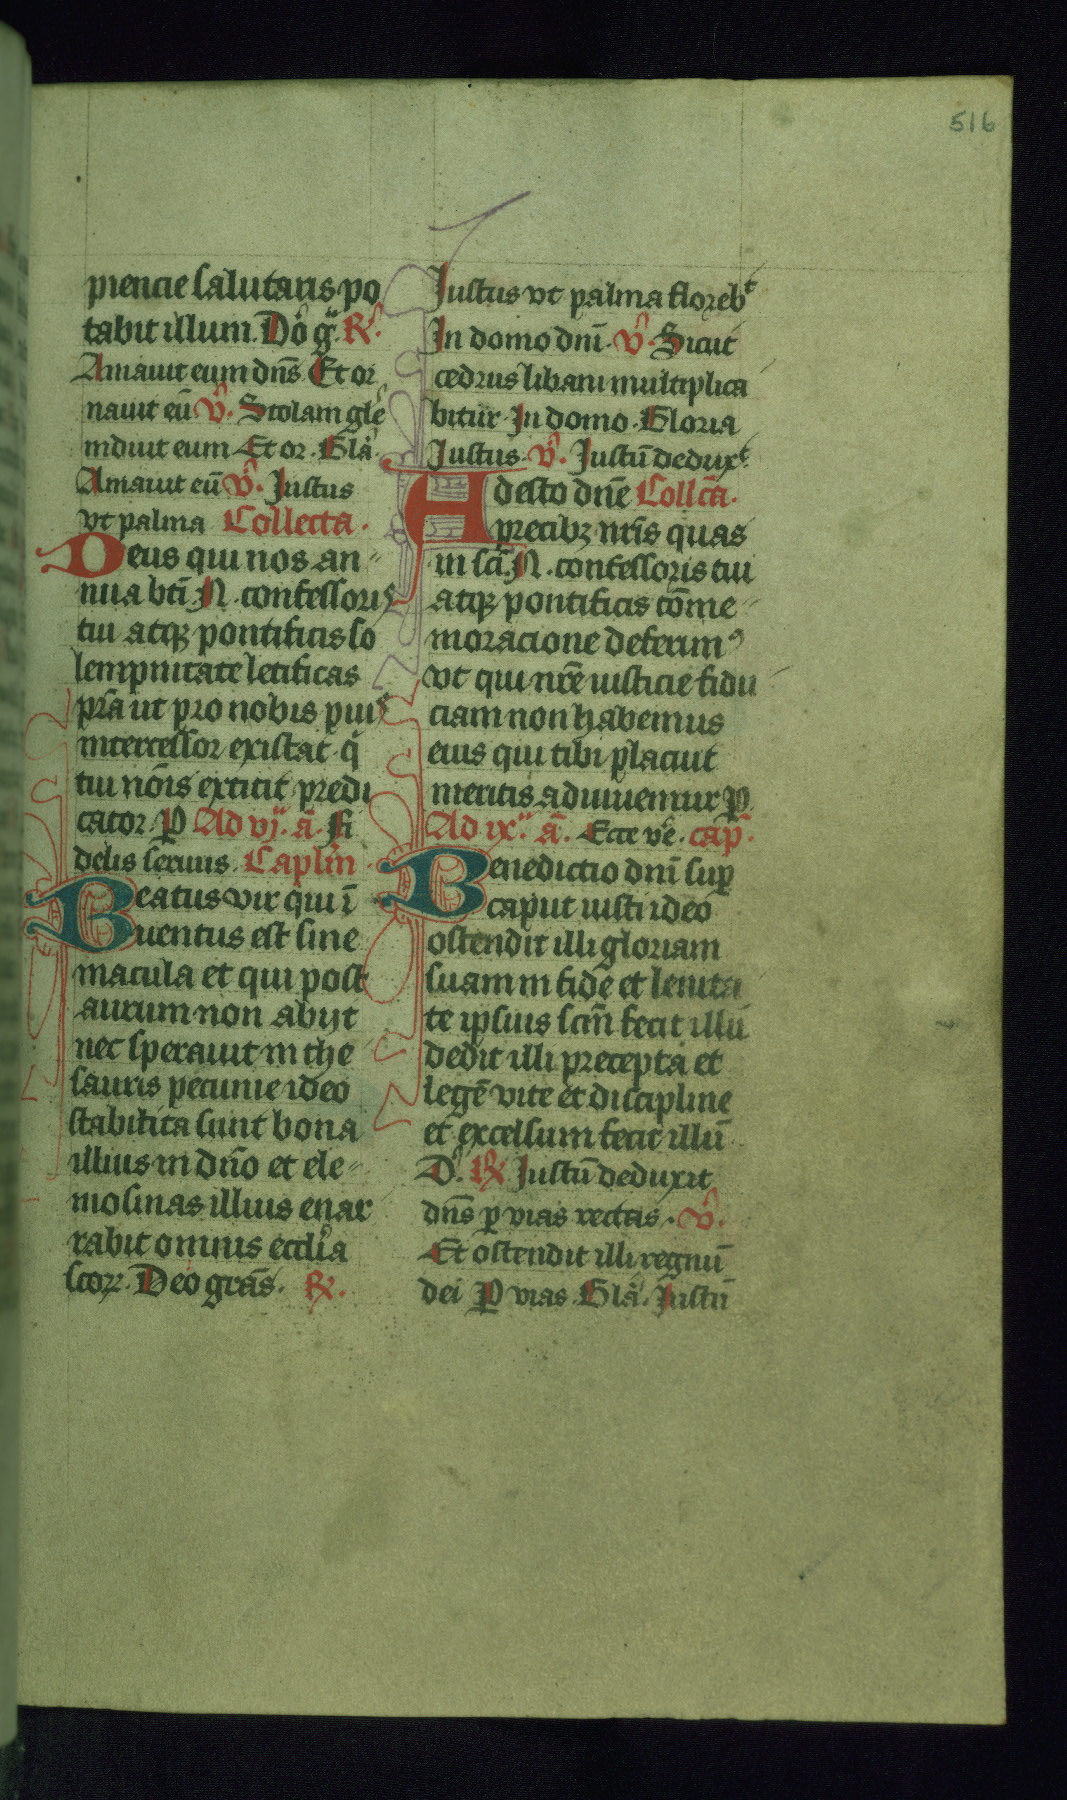 516
piencie salutaris po
tabit illum. Dō gͣ. R̃.
Amauit eum dn̄s Et or
nauit eū V̄. Stolam glē
induit eum Et or. Glā.
Amauit eū V̄. Justus
vt palma Collecta.
Deus qui nos an-
nua bt̄i N. confessoris
tui atqꝫ pontificis so
lempnitate letificas
pr̄a ut pro nobis pius
intercessor existat q̄
tui nōis extitit predi
cator. P Ad vj. ā. Fi
delis seruus. Caplm̄
Beatus vir qui ī
uentus est sine
macula et qui post
aurum non abijt
nec sperauit in the
sauris pecunie ideo
stabilita sunt bona
illius in dn̄o et ele-
mosinas illius enar
rabit omnis eccli̅a
scōꝝ. Deo grās. R̃.
Justus vt palma florebᵗ
In domo dn̄i. V̄. Sicut
cedrus libani multiplica
bitur In domo. Gloria
Justus. V̄. Justū deduxᵗ
Adesto dn̄e Collc̄a.
precibꝫ nr̄is quas
in sc̄i N. confessoris tui
atqꝫ pontificis cōme-
moracione deferimꝯ
vt qui nr̄e iusticie fidu
ciam non habemus
eius qui tibi placuit
meritis adiuuemur P.
Ad ix. ā. Ecce v̄e. cap̄.
Benedictio dn̄i suꝑ
caput iusti ideo
ostendit illi gloriam
suam in fide et lenita
te ipsius scm̄ fecit illū
dedit illi precepta et
legē vite et discipline
et excelsum fecit illū
D. R̃ Justū deduxit
dn̄s ꝑ vias rectas. V̄.
Et ostendit illi regnū
dei P vias. Glā. Justū